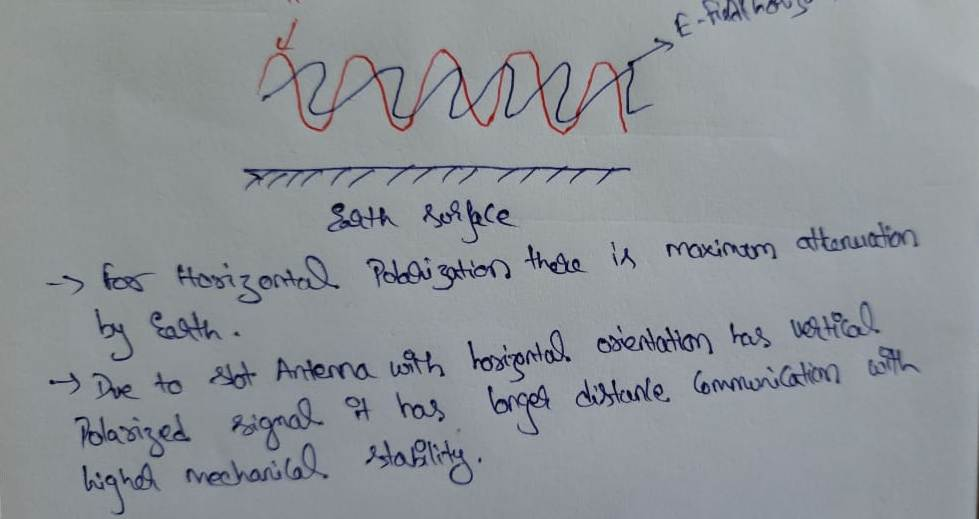 E-field
Earth surface
→ for Horizontal Polarization there is maximum attenuation
by Earth.
→ Due to slot Antenna with horizontal orientation has vertical
Polarized signal it has longer distance Communication with
higher mechanical stability.